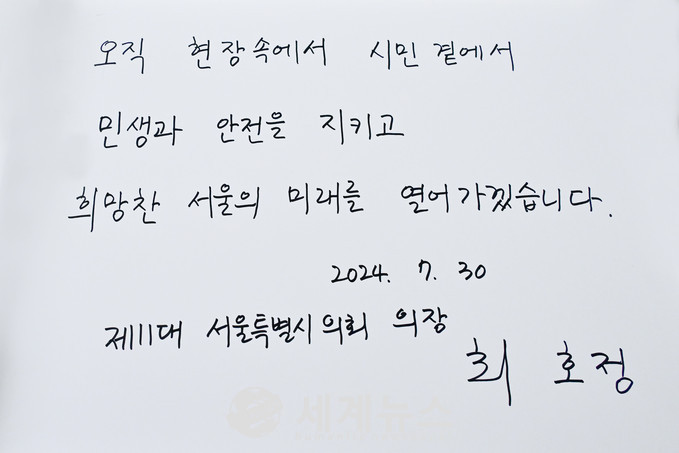 오직 현장속에서 시민 곁에서
민생과 안전을 지키고
희망찬 서울의 미래를 열어가겠습니다.
2024. 7. 30
제11대 서울특별시의회 의장
최호정
세계뉴스